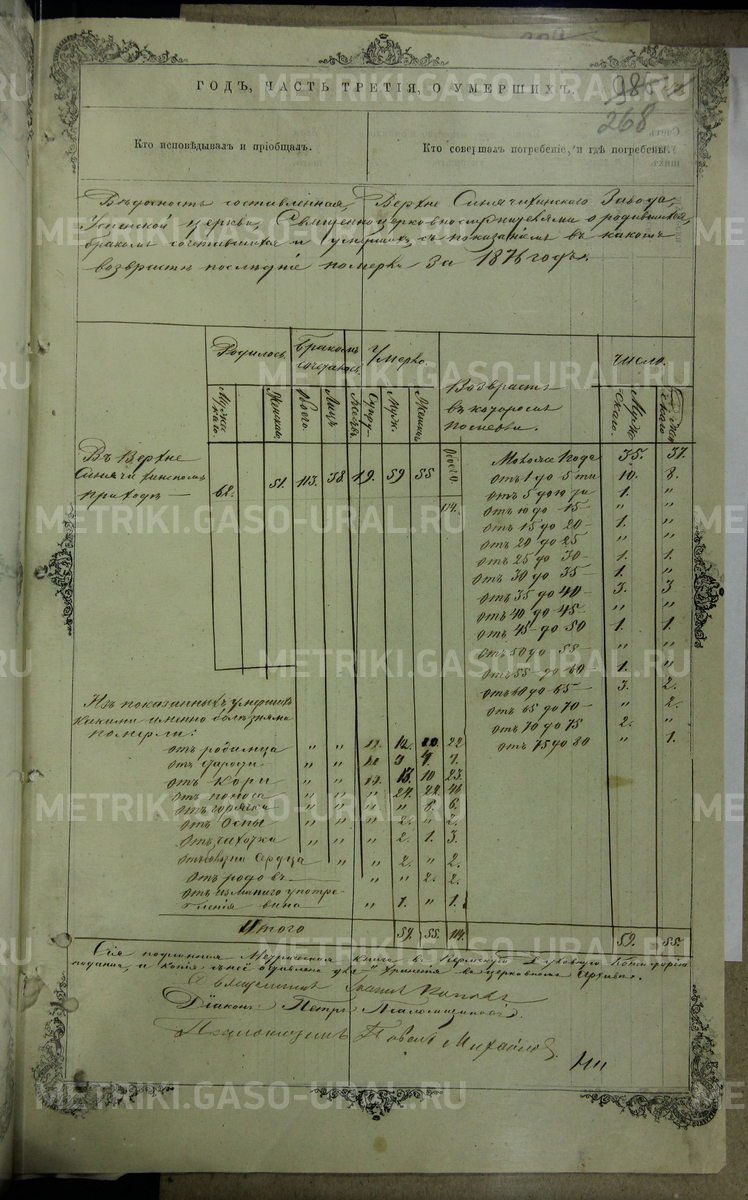 ГОДЪ, ЧАСТЬ ТРЕТІЯ, О УМЕРШИХЪ.
268
Кто исповѣдывалъ и пріобщалъ.
Кто совершалъ погребеніе, и гдѣ погребены.
Вѣдомость составленная, Верхне Синячихинскаго Завода,
Успенской церкви, Священноцерковнослужителями о родившихся,
бракомъ сочетавшихся и умершихъ, съ показаніемъ въ какомъ
возврастѣ послѣдніе померли За 1876 годъ.
Родилось Бракомъ сочеталось Умерло. Возврастъ въ которомъ померли. число.
Мужескаго. Женскаго. Всего. Лицъ Муж. Женск. Всего. Мужескаго. Женскаго
Въ Верхне
Синячихинскомъ
приходѣ — 62. 51. 113. 38. 19. 59 55
114.
Моложе 1 года 35. 37.
отъ 1 до 5ти 10. 8.
отъ 5 до 10 ти 1. "
отъ 10 до 15 " "
отъ 15 до 20 1. "
отъ 20 до 25 " "
отъ 25 до 30 1. 1.
отъ 30 до 35 1. "
отъ 35 до 40 3. 3
отъ 40 до 45 " "
отъ 45 до 50 1. 1.
отъ 50 до 55 " "
отъ 55 до 60 1. "
отъ 60 до 65 3. 2.
отъ 65 до 70 " 2.
отъ 70 до 75 2. "
отъ 75 до 80 " 1.
Изъ показанныхъ умершихъ
какими именно болѣзнями
померли:
отъ родимца " " 12. 10. 22
отъ Кори " " 13. 10 23.
отъ поноса " " "
отъ горячки " " " " 6. 6.
отъ Оспы " " " 2. " 2.
отъ чахотки " " " 2. 1. 3.
Сердца " " 2. " 2.
отъ родовъ " " 2. 2.
отъ излишняго употребленія вина " 1. " 1.
Итого 59. 55. 114. 59. 55.
Сія подлинная Метрическая Книга въ Пермскую Духовную Консисторію
подана, а копія съ неё оставлена для храненія въ церковномъ Архивѣ.
Священникъ Іоаннъ Поповъ
Діаконъ Петръ
Псаломщикъ Павелъ Михайловъ
METRIKI.GASO-URAL.RU